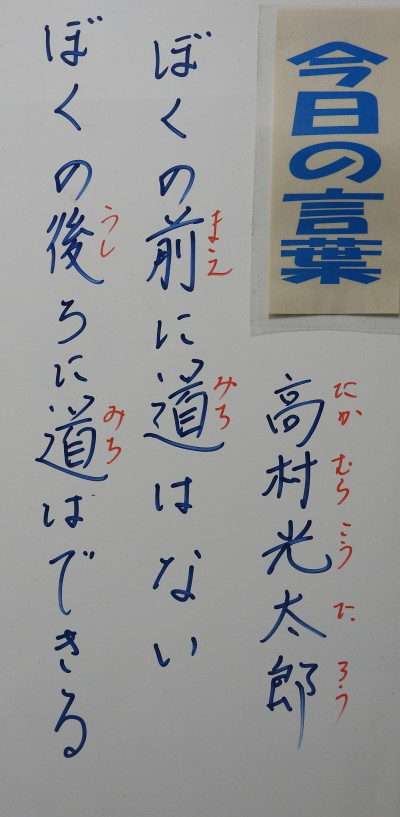 今日の言葉
高村光太郎
たかむらこうたろう
ぼくの前に道はない
まえ
みち
ぼくの後ろに道はできる
うし
みち